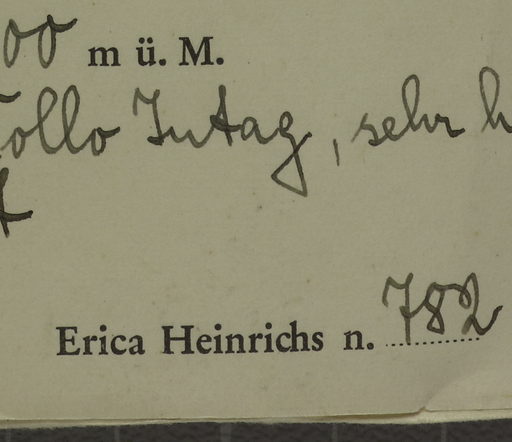 00 m ü. M.
ollo Intag, sehr h
Erica Heinrichs n. 782